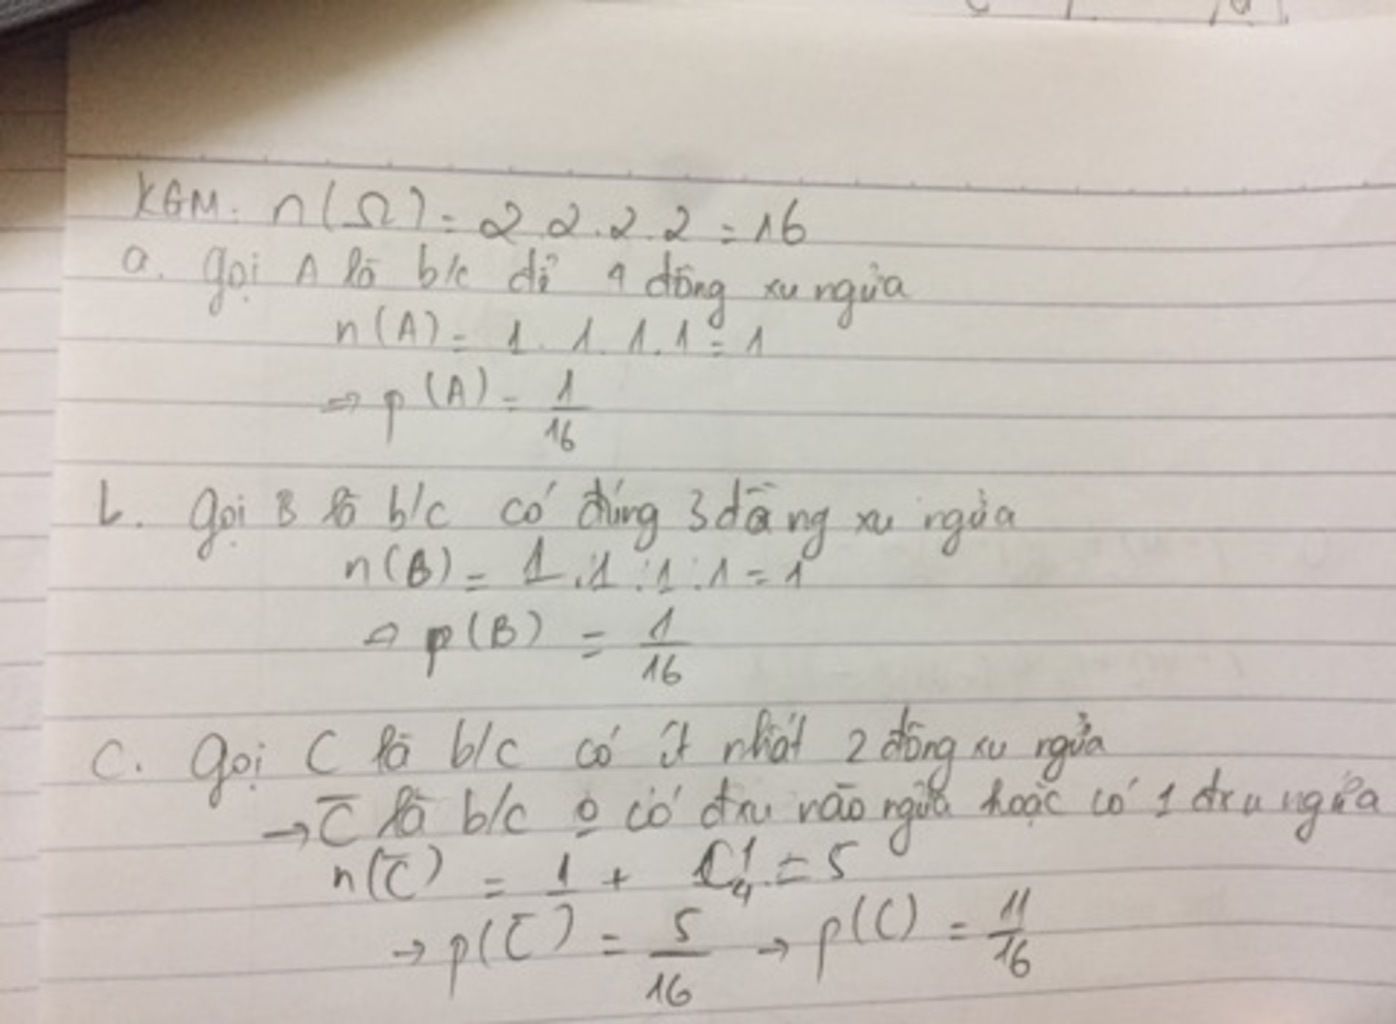 KGM: n(Ω) = 2.2.2.2 = 16
a. gọi A là b/c để 4 đồng xu ngửa
n(A) = 1.1.1.1 = 1
⇒ p(A) = 1/16
b. gọi B là b/c có đúng 3 đồng xu ngửa
n(B) = 1.1.1.1 = 1
⇒ p(B) = 1/16
C. gọi C là b/c có ít nhất 2 đồng xu ngửa
→ C̅ là b/c o̲ có đxu nào ngửa hoặc có 1 đxu ngửa
n(C̅) = 1 + C¹₄ = 5
→ p(C̅) = 5/16 → p(C) = 11/16